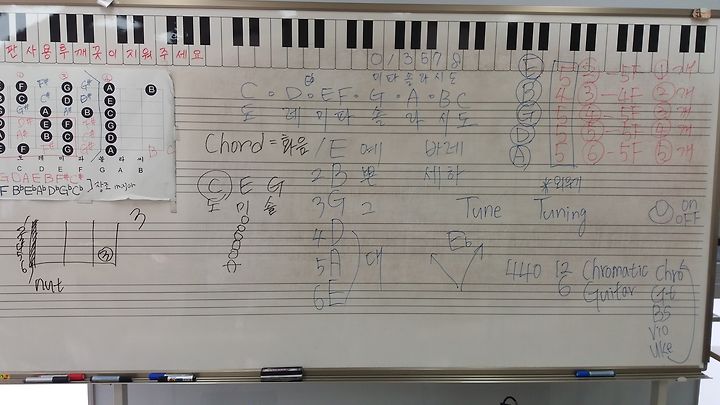 판 사 용 후 깨 끗 이 지 워 주 세 요
F F# G G# A B
C D E F G A B
G C A E B F# C#
F Bb Eb Ab Db Gb Cb 장조 major
0 1 3 5 7 8
미 파 솔 라 시 도
C · D · E F · G · A · B C
Eb
도 레 미 파 솔 라 시 도
Chord = 화음
C E G
도 미 솔
1 E 에
2 B 뽀
3 G 그
4 D
5 A 대
6 E
바레
세하
Eb
E 5 3 - 5F 1 개
B 4 3 - 4F 2 개
G 5 4 - 5F 3 개
D 5 5 - 5F 4 개
A 5 6 - 5F 5 개
* 외우기
Tune Tuning
on
off
440 12 Chromatic chro
6 Guitar Gt
BS
Vio
Uke
3
1
2
3
4
5
6
3
nut